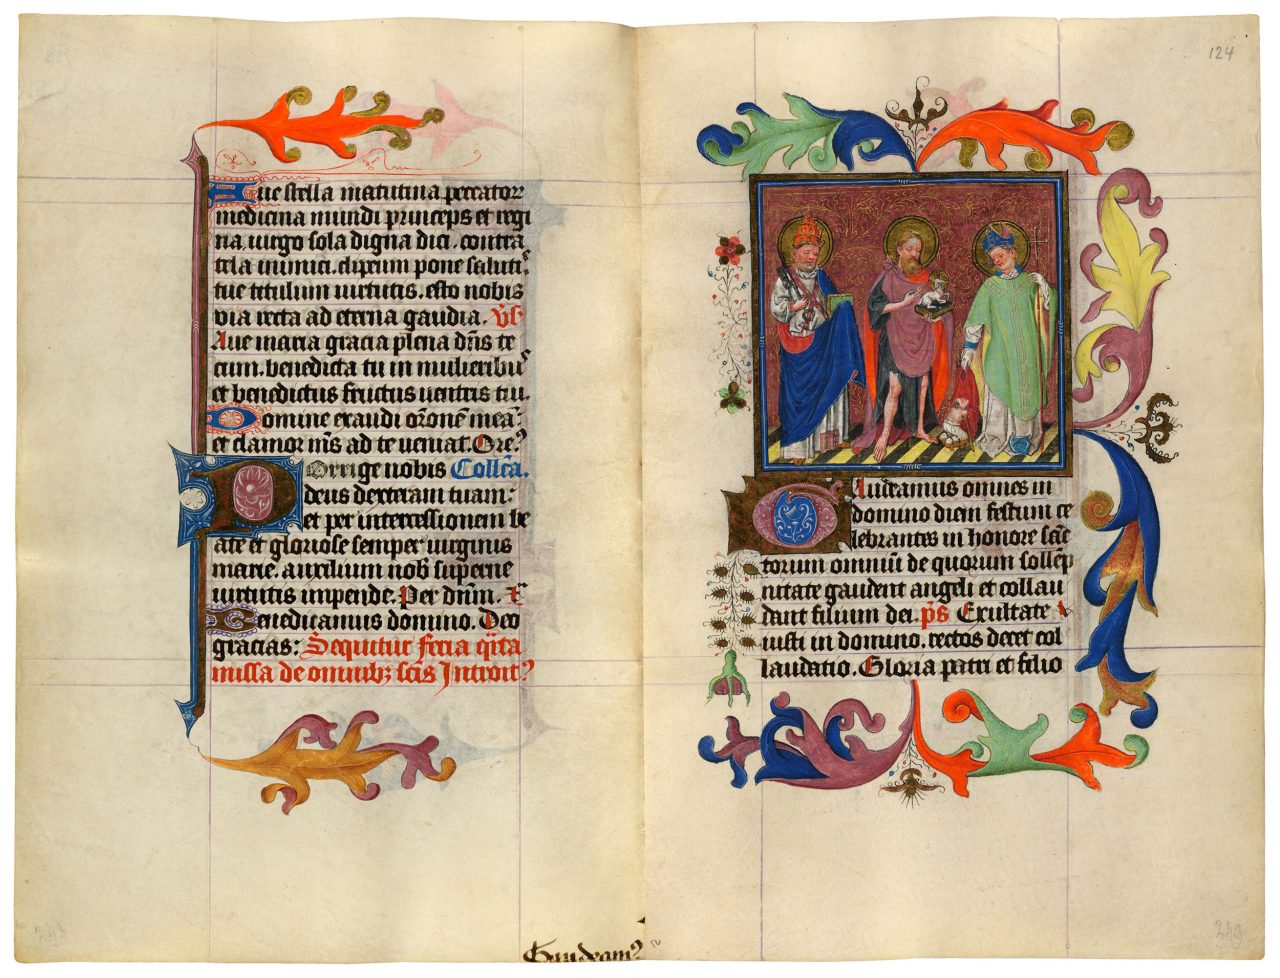 Aue stella matutina peccator
medicina mundi princeps et regi
na. uirgo sola digna dici. contra
tela inimici. clipeum pone saluti
tue titulum uirtutis. esto nobis
via recta ad eterna gaudia. Vs
Aue maria gracia plena dns te
cum. benedicta tu in mulieribu
et benedictus fructus uentris tui.
Domine exaudi orone mea:
et clamor ms ad te ueniat. Ore
Porrige nobis Collca.
deus dexteram tuam:
et per intercessionem be
ate et gloriose semper uirginis
marie. auxilium nob superne
uirtutis impende. Per dnm.
Benedicamus domino. Deo
gracias: Sequitur feria qita
missa de omnibz scis Introit
Gaudeam
124
Gaudeamus omnes in
domino diem festum ce
lebrantes in honore sanc
torum omniu de quorum sollep
nitate gaudent angeli et collau
dant filium dei. ps Exultate
iusti in domino. rectos decet col
laudatio. Gloria patri et filio
249